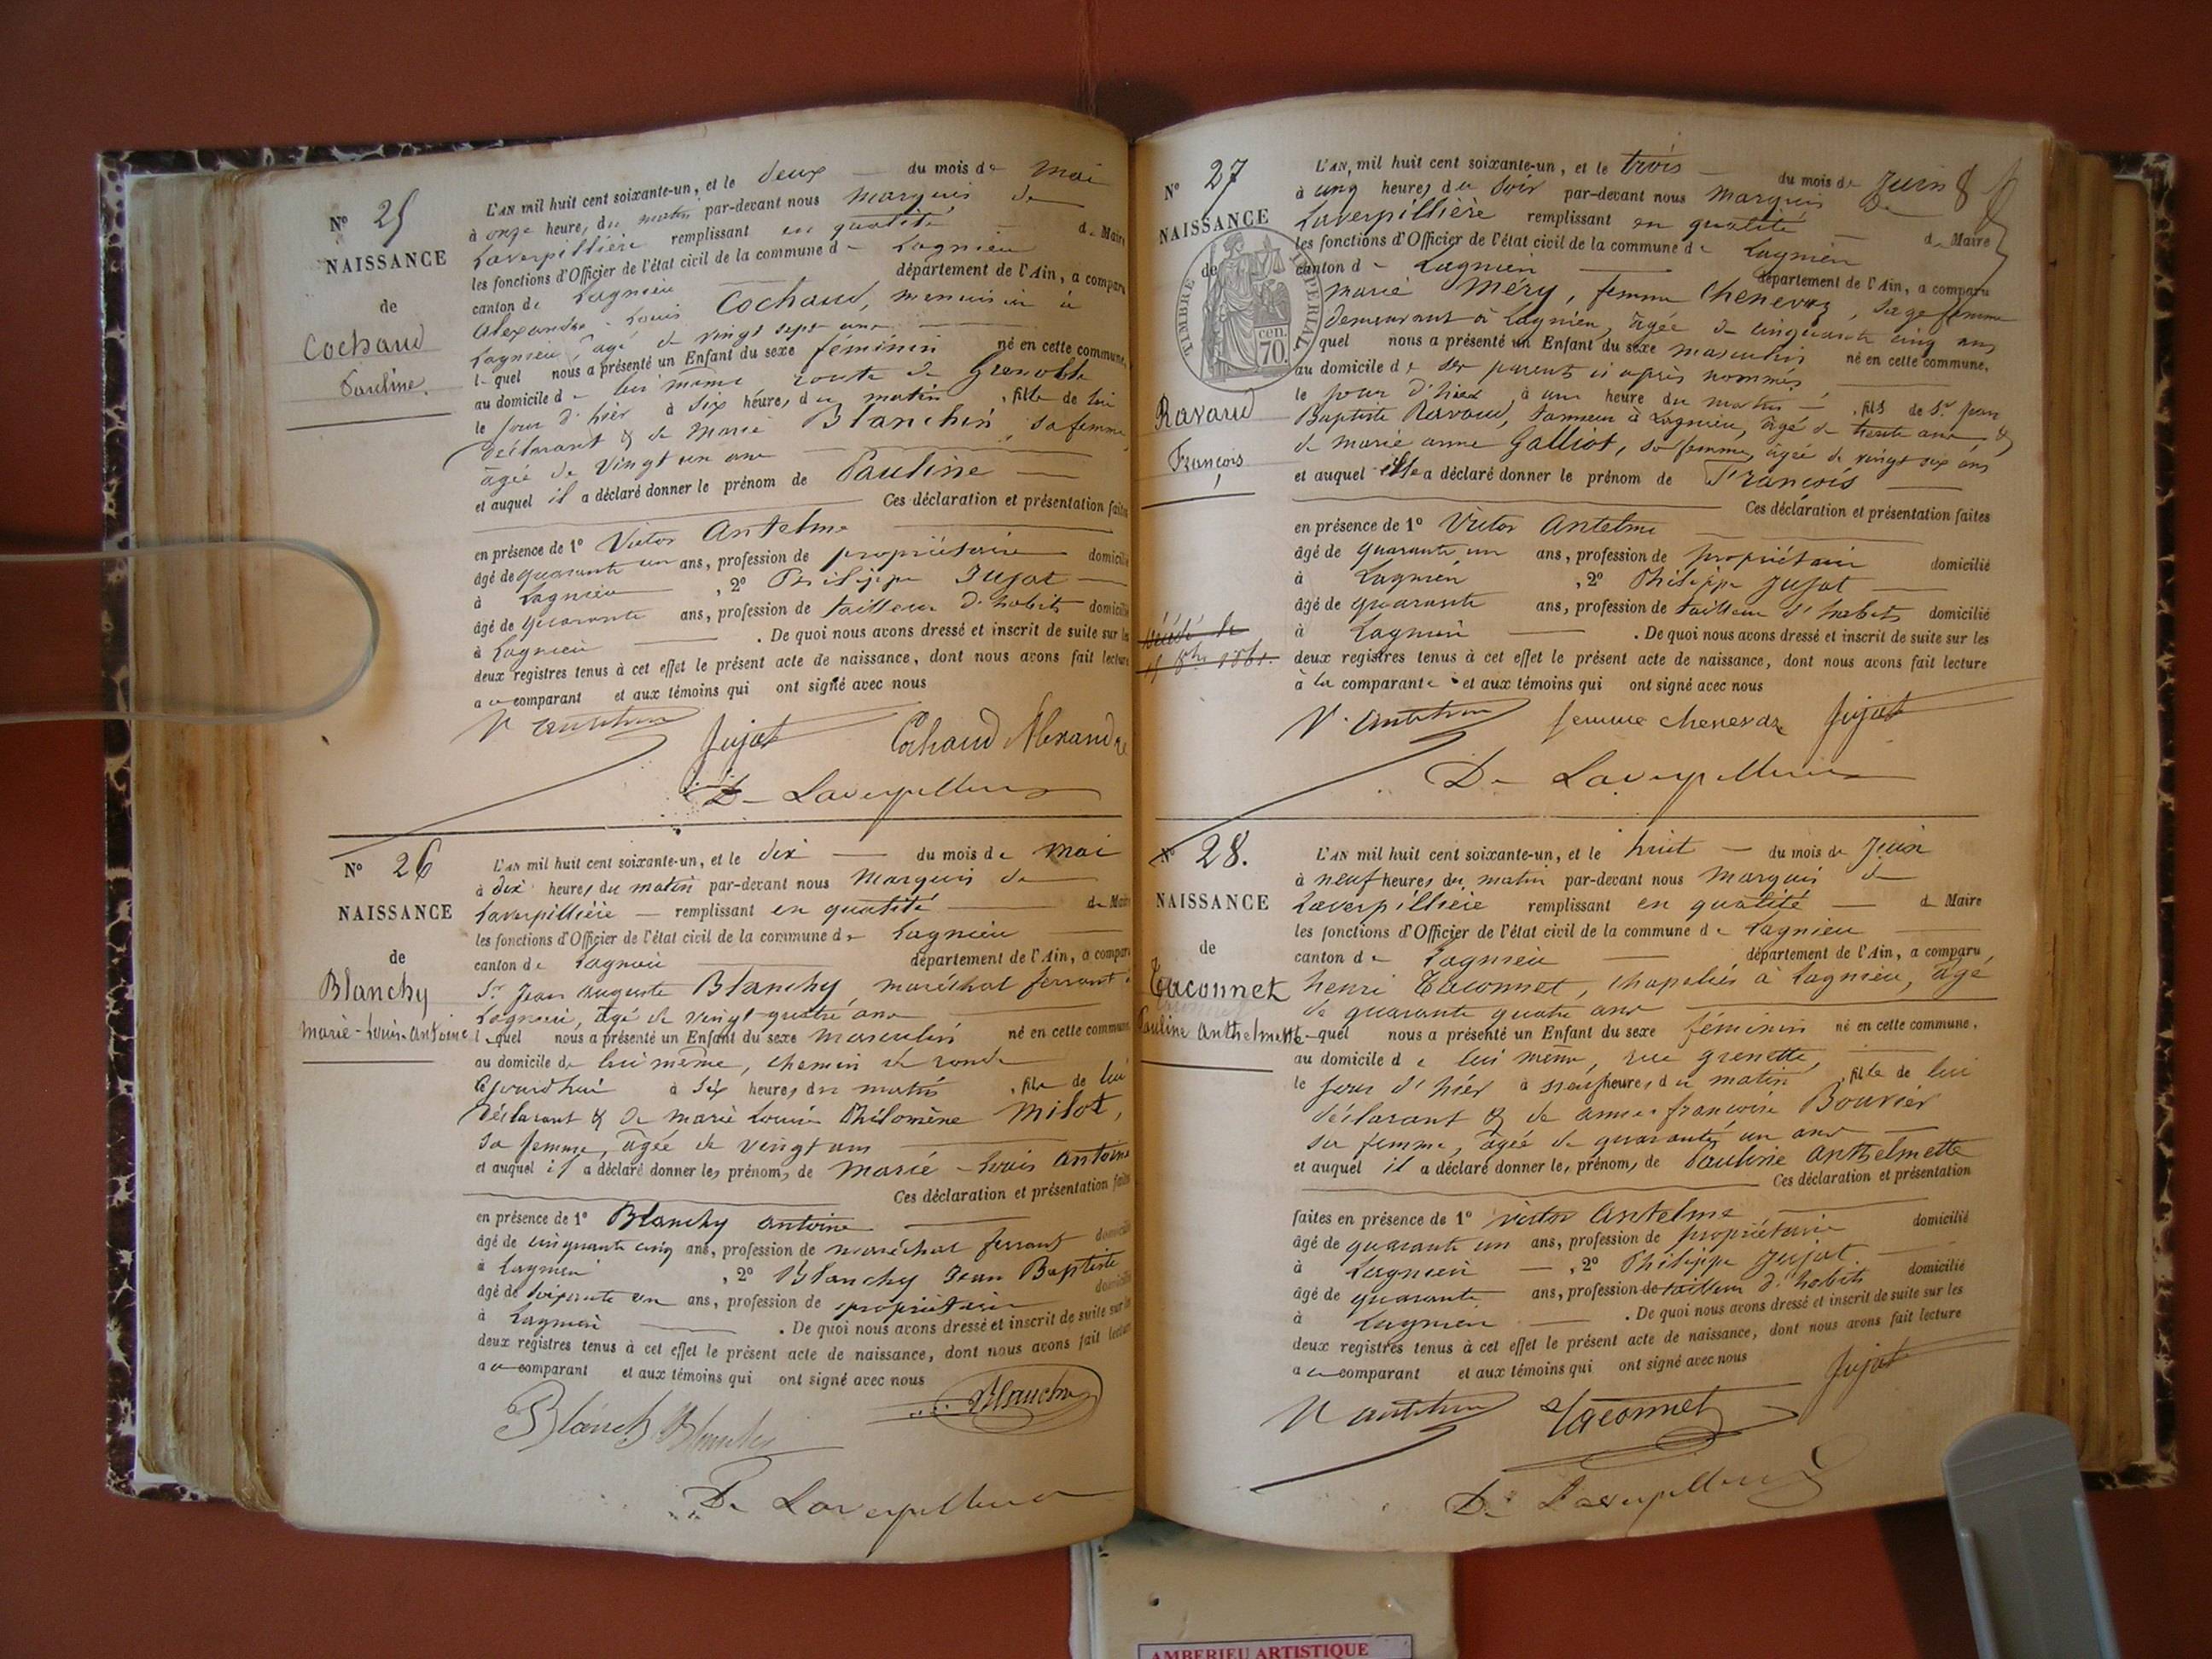 Nº 25
NAISSANCE
de
Cochaud
Pauline
L'AN mil huit cent soixante-un, et le deux du mois de mai
à onze heures, du matin par-devant nous marquis de
Laverpillière remplissant en qualité de Maire
les fonctions d'Officier de l'état civil de la commune de Lagnieu
canton de Lagnieu département de l'Ain, a comparu
alexandre-Louis Cochaud, menuisier à
Lagnieu, âgé de vingt sept ans
lequel nous a présenté un Enfant du sexe féminin né en cette commune,
au domicile de lui même route de Grenoble
le jour d'hier à six heures, du matin, fille de lui
déclarant & de marie Blanchin, sa femme
âgée de vingt un ans
et auquel il a déclaré donner le prénom de Pauline
Ces déclaration et présentation faites
en présence de 1º Victor Antelme
âgé de quarante un ans, profession de propriétaire domicilié
à Lagnieu, 2º Philippe Jujat
âgé de quarante ans, profession de tailleur d'habits domicilié
à Lagnieu. De quoi nous avons dressé et inscrit de suite sur les
deux registres tenus à cet effet le présent acte de naissance, dont nous avons fait lecture
au comparant et aux témoins qui ont signé avec nous
V. antelme Jujat Cochaud Alexandre
De Laverpilliere
Nº 26
NAISSANCE
de
Blanchy
marie-Louis-antoine
L'AN mil huit cent soixante-un, et le dix du mois de mai
à dix heures du matin par-devant nous marquis de
Laverpillière remplissant en qualité de Maire
les fonctions d'Officier de l'état civil de la commune de Lagnieu
canton de Lagnieu département de l'Ain, a comparu
Sr. Jean auguste Blanchy, maréchal ferrant à
Lagnieu, âgé de vingt-quatre ans
lequel nous a présenté un Enfant du sexe masculin né en cette commune
au domicile de lui même, chemin de ronde
aujourd'hui à six heures du matin, fils de lui
déclarant & de marie Louise Philomène Milot,
sa femme, âgée de vingt ans
et auquel il a déclaré donner les prénoms de marie-Louis antoine
Ces déclaration et présentation faites
en présence de 1º Blanchy antoine
âgé de cinquante cinq ans, profession de maréchal ferrant domicilié
à Lagnieu, 2º Blanchy Jean Baptiste
âgé de soixante un ans, profession de propriétaire domicilié
à Lagnieu. De quoi nous avons dressé et inscrit de suite sur les
deux registres tenus à cet effet le présent acte de naissance, dont nous avons fait lecture
au comparant et aux témoins qui ont signé avec nous
Blanch Blanchy Blanchy
De Laverpilliere
Nº 27
NAISSANCE
de
TIMBRE IMPERIAL
70 cen.
Ravaud
François
décédé le
15 8bre 1861.
8
L'AN, mil huit cent soixante-un, et le trois du mois de Juin
à cinq heures du soir par-devant nous marquis de
Laverpillière remplissant en qualité de Maire
les fonctions d'Officier de l'état civil de la commune de Lagnieu
canton de Lagnieu département de l'Ain, a comparu
marie Méry, femme Chenevaz, sage femme
demeurant à Lagnieu, âgée de cinquante cinq ans
quel nous a présenté un Enfant du sexe masculin né en cette commune,
au domicile de ses parents ci après nommés
le jour d'hier, à une heure du matin, fils de Sr. Jean
Baptiste Ravaud, tanneur à Lagnieu, âgé de trente ans &
de marie anne Galliot, sa femme, âgée de vingt six ans
et auquel elle a déclaré donner le prénom de François
Ces déclaration et présentation faites
en présence de 1º Victor Antelme
âgé de quarante un ans, profession de propriétaire domicilié
à Lagnieu, 2º Philippe Jujat
âgé de quarante ans, profession de tailleur d'habits domicilié
à Lagnieu. De quoi nous avons dressé et inscrit de suite sur les
deux registres tenus à cet effet le présent acte de naissance, dont nous avons fait lecture
à la comparante et aux témoins qui ont signé avec nous
V. antelme femme chenevaz Jujat
De Laverpilliere
Nº 28.
NAISSANCE
de
Taconnet
Pauline Anthelmette
L'AN mil huit cent soixante-un, et le huit du mois de Juin
à neuf heures du matin par-devant nous marquis de
Laverpillière remplissant en qualité de Maire
les fonctions d'Officier de l'état civil de la commune de Lagnieu
canton de Lagnieu département de l'Ain, a comparu
henri Taconnet, chapelier à Lagnieu, âgé
de quarante quatre ans
lequel nous a présenté un Enfant du sexe féminin né en cette commune,
au domicile de lui même, rue grenette,
le jour d'hier à neuf heures du matin, fille de lui
déclarant & de anne francoise Bouvier
sa femme, âgée de quarante un ans
et auquel il a déclaré donner les prénoms de Pauline anthelmette
Ces déclaration et présentation
faites en présence de 1º victor Antelme
âgé de quarante un ans, profession de propriétaire domicilié
à Lagnieu, 2º Philippe Jujat
âgé de quarante ans, profession de tailleur d'habits domicilié
à Lagnieu. De quoi nous avons dressé et inscrit de suite sur les
deux registres tenus à cet effet le présent acte de naissance, dont nous avons fait lecture
au comparant et aux témoins qui ont signé avec nous
V antelme Taconnet Jujat
De Laverpilliere
AMBERIEU ARTISTIQUE